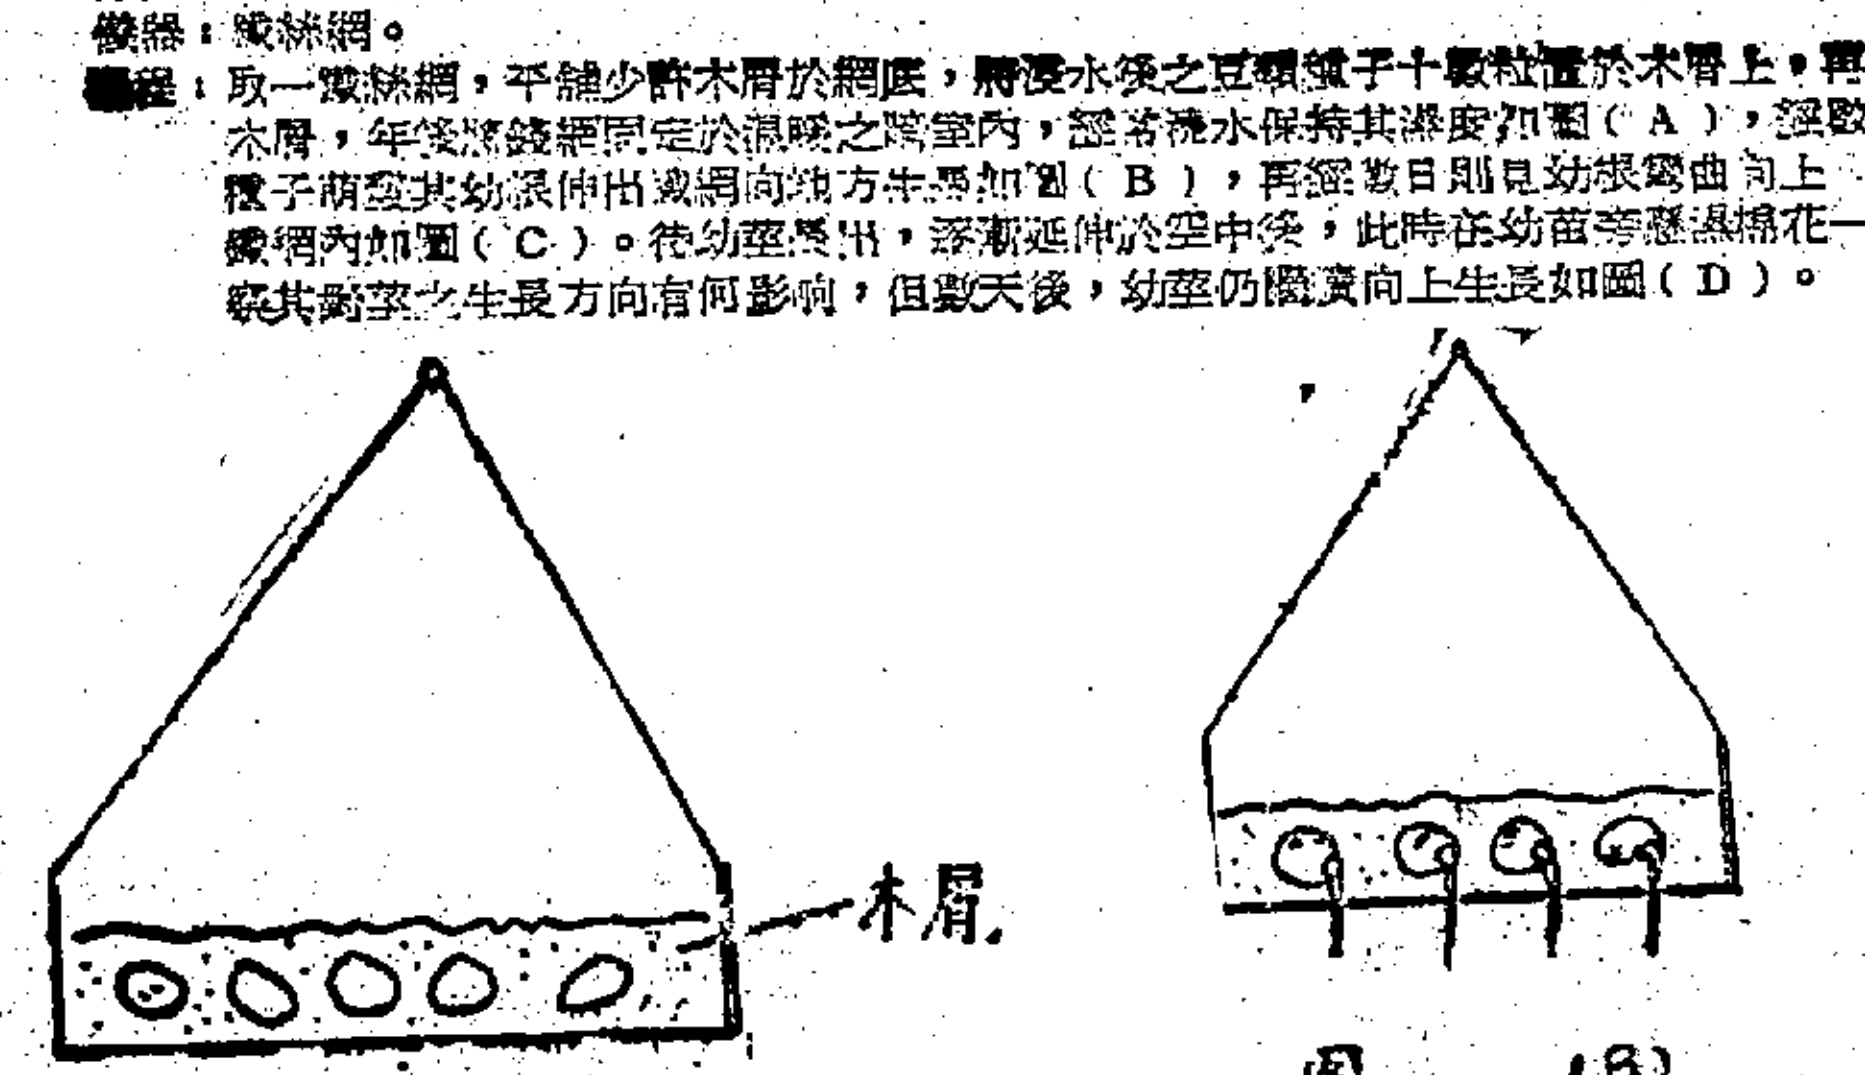 儀器：鐵絲網。
過程：取一鐵絲網，平舖少許木屑於網底，將浸水後之豆類種子十數粒置於木屑上，再
木屑，年後將鐵網固定於溫暖之暗室內，經常澆水保持其濕度如圖（A），經數
種子萌發其幼根伸出鐵網向地方生長如圖（B），再經數日則見幼根彎曲向上
鐵網內如圖（C）。待幼莖長出，逐漸延伸於空中後，此時在幼苗旁懸濕棉花一
察其對莖之生長方向有何影响，但數天後，幼莖仍繼續向上生長如圖（D）。
木屑.
圖（B）